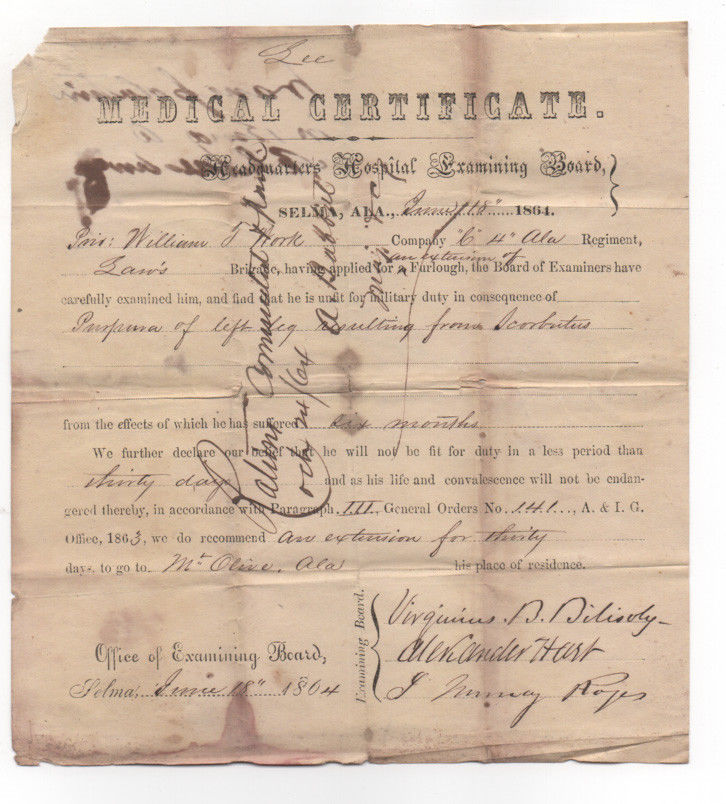 Lee
MEDICAL CERTIFICATE.
Headquarters Hospital Examining Board,
SELMA, ALA., June 18" 1864.
Priv: William J Company "C" 4" Ala Regiment,
an extension of
Law's Brigade, having applied for a Furlough, the Board of Examiners have
carefully examined him, and find that he is unfit for military duty in consequence of
Purpura of left leg resulting from Scorbutus
from the effects of which he has suffered six months
We further declare our belief that he will not be fit for duty in a less period than
thirty days and as his life and convalescence will not be endan-
gered thereby, in accordance with Paragraph III, General Orders No. 141, A. & I. G.
Office, 1863, we do recommend an extension for thirty
days, to go to Mt Olive, Ala his place of residence.
Examining Board.
Virginius. B. Bilisoly
Alexander Hart
J Murray
Office of Examining Board,
Selma, June 18" 1864
Rations Commuted